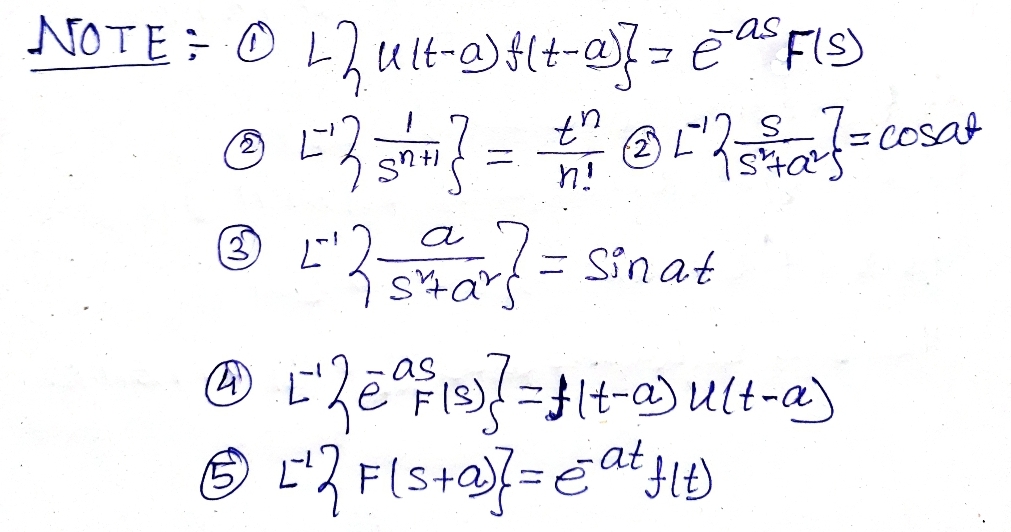 NOTE :- ① L{u(t-a) f(t-a)} = e^{-as} F(s)
② L^{-1}{1/s^{n+1}} = t^n/n! ② L^{-1}{s/(s²+a²)} = cosat
③ L^{-1}{a/(s²+a²)} = sin at
④ L^{-1}{e^{-as} F(s)} = f(t-a) u(t-a)
⑤ L^{-1}{F(s+a)} = e^{-at} f(t)